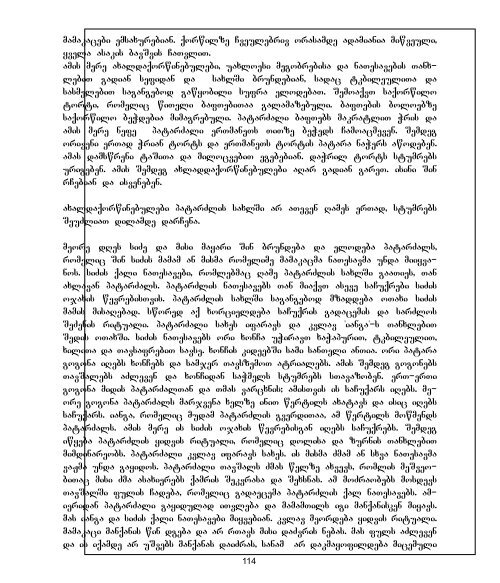 მამაკაცები ემსახურებიან. ქორწილზე ჩვეულებრივ ორასამდე ადამიანია მიწვეული,
ყველა ასაკის ბავშვის ჩათვლით.
ამის მერე ახალდაქორწინებულები, უახლოესი მეგობრებისა და ნათესავების თანხ-
ლებით გადიან სეფიდან და სახლში ბრუნდებიან, სადაც ტკბილეულითა და
სასმელებით საგანგებოდ გაწყობილი სუფრა ელოდებათ. შემოაქვთ საქორწილო
ტორტი, რომელიც წითელი ბაფთებითაა გალამაზებული. ბაფთების ბოლოებზე
საქორწილო ბეჭდებია მიმაგრებული. პატარძალი ბაფთებს მაკრატლით ჭრის და
ამის მერე ნეფე პატარძალი ერთმანეთს თითზე ბეჭედს ჩამოაცმევენ. შემდეგ
ორივენი ერთად ჭრიან ტორტს და ერთმანეთს ტორტის პატარა ნაჭერს აწოდებენ.
ამას დამსწრენი ტაშითა და მილოცვებით ეგებებიან. დაჭრილ ტორტს სტუმრებს
ურიგებენ. ამის შემდეგ ახლადდაქორწინებულები აღარ გადიან გარეთ. ისინი შინ
რჩებიან და ისვენებენ.
ახალდაქორწინებულები პატარძლის სახლში არ ათევენ ღამეს ერთად, სტუმრებს
შეუძლიათ დილამდე დარჩენა.
მეორე დღეს სიძე და მისი მაყარი შინ ბრუნდება და ელოდება პატარძალს,
რომელიც შინ სიძის მამამ ან მისმა რომელიმე მამაკაცმა ნათესავმა უნდა მიიყვა-
ნოს. სიძის ქალი ნათესავები, რომლებმაც ღამე პატარძლის სახლში გაათიეს, თან
ახლავან პატარძალს. პატარძლის ნათესავებს თან მიაქვთ ასევე საჩუქრები სიძის
ოჯახის წევრებისთვის. პატარძლის სახლში საგანგებოდ მზადდება ოთახი სიძის
მამის მისაღებად. სწორედ აქ ხორციელდება საჩუქრის გადაცემის და სარძლოს
შეძენის რიტუალი. პატარძალი სახეს იფარავს და კვლავ იანგა-ს თანხლებით
შედის ოთახში. სიძის ნათესავებს ორი ხონჩა უჭირავთ საჭაპურით, ტკბილეულით,
ხილითა და თავსაფრებით სავსე. ხონჩის კიდეებში სამი სანთელი ანთია. ორი პატარა
გოგონა იღებს ხონჩებს და სამჯერ თავსზემოთ ატრიალებს. ამის შემდეგ გოგონებს
თავშალებს აძლევენ და ხონჩიდან საჭმელს სტუმრებს სთავაზობენ. ერთ-ერთი
გოგონა მიდის პატარძალთან და თმას ვარცხნის; ამისთვის ის საჩუქარს იღებს. მე-
ორე გოგონა პატარძალს მარჯვენა ხელზე ინით წერტილს ახატავს და ისიც იღებს
საჩუქარს. იანგა, რომელიც მუდამ პატარძლის გვერდითაა, ამ წერტილს მოწმენდს
პატარძალს. ამის მერე ის სიძის ოჯახის წევრებისგან იღებს საჩუქრებს. შემდეგ
იწყება პატარძლის ყიდვის რიტუალი, რომელიც დოლისა და ზურნის თანხლებით
მიმდინარეობს. პატარძალი კვლავ იფარავს სახეს. ის მისმა ძმამ ან სხვა ნათესავმა
ვაჟმა უნდა გაყიდოს. პატარძალი თავშალს ძმას წელზე ახვევს, რომლის მეშვეო-
ბითაც მისი ძმა ასახიერებს ქამრის შეკვრასა და შეხსნას. ამ მოძრაობებს მოსდევს
თავშალში ფულის ჩადება, რომელიც გადაეცემა პატარძლის ქალ ნათესავებს. ამ-
იერიდან პატარძალი გაყიდულად ითვლება და მამამთილს იგი მანქანისკენ მიყავს.
მას იანგა და სიძის ქალი ნათესავები მიყვებიან. კვლავ მეორდება ყიდვის რიტუალი.
მამაკაცი მანქანის წინ დგება და არ რთავს მისი დაძვრის ნებას. მას ფულს აძლევენ
და ის იქამდე არ უშვებს მანქანას დაიძრას, სანამ არ დაკმაყოფილდება მიცემული
114